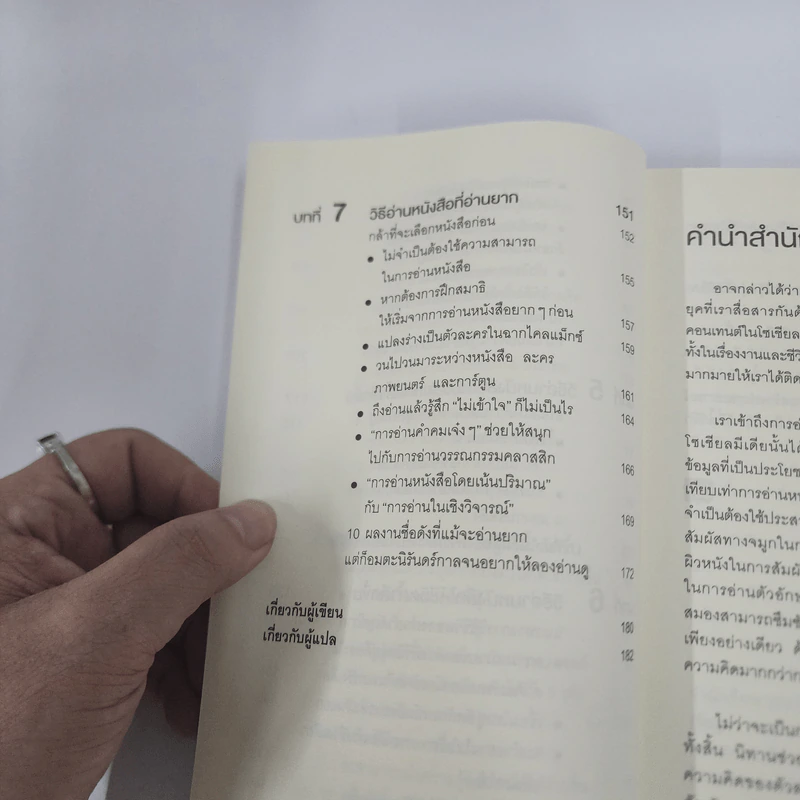 บทที่ 7 วิธีอ่านหนังสือที่อ่านยาก 151
กล้าที่จะเลือกหนังสือก่อน 152
• ไม่จำเป็นต้องใช้ความสามารถ
ในการอ่านหนังสือ 155
• หากต้องการฝึกสมาธิ
ให้เริ่มจากการอ่านหนังสือยาก ๆ ก่อน 157
• แปลงร่างเป็นตัวละครในฉากไคลแม็กซ์ 159
• วนไปวนมาระหว่างหนังสือ ละคร
ภาพยนตร์ และการ์ตูน 161
• ถึงอ่านแล้วรู้สึก "ไม่เข้าใจ" ก็ไม่เป็นไร 164
• "การอ่านคำคมเจ๋ง ๆ" ช่วยให้สนุก
ไปกับการอ่านวรรณกรรมคลาสสิก 166
• "การอ่านหนังสือโดยเน้นปริมาณ"
กับ "การอ่านในเชิงวิจารณ์" 169
10 ผลงานชื่อดังที่แม้จะอ่านยาก
แต่ก็อมตะนิรันดร์กาลจนอยากให้ลองอ่านดู 172
เกี่ยวกับผู้เขียน 180
เกี่ยวกับผู้แปล 182
คำนำสำนั
อาจกล่าวได้ว่า
ยุคที่เราสื่อสารกันด้
คอนเทนต์ในโซเชียล
ทั้งในเรื่องงานและชีวิ
มากมายให้เราได้ติด
เราเข้าถึงการอ่า
โซเชียลมีเดียนั้นได้
ข้อมูลที่เป็นประโยช
เทียบเท่าการอ่านหน
จำเป็นต้องใช้ประส
สัมผัสทางจมูกในก
ผิวหนังในการสัมผั
ในการอ่านตัวอักษ
สมองสามารถซึมซั
เพียงอย่างเดียว
ความคิดมากกว่าก
ไม่ว่าจะเป็นก
ทั้งสิ้น นิทานช่วย
ความคิดของตัวล